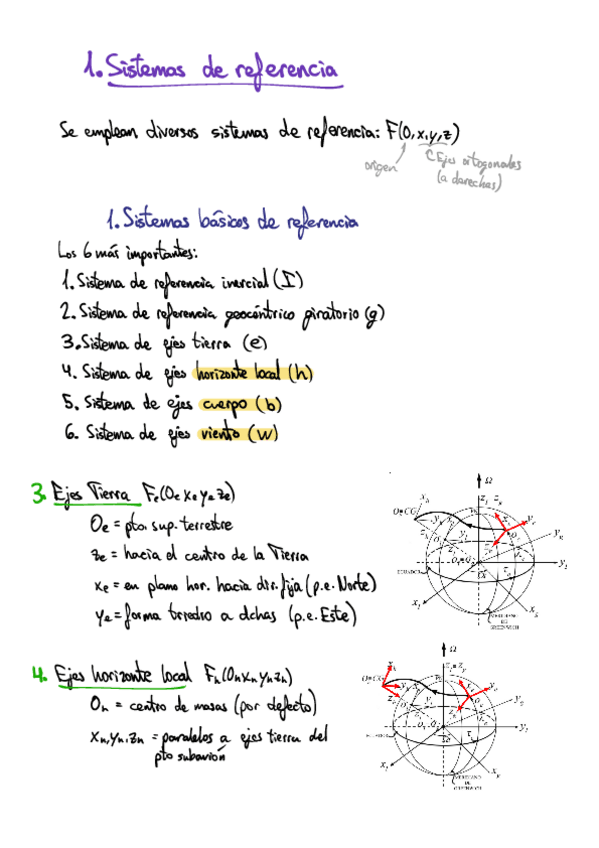 1. Sistemas de referencia
Se emplean diversos sistemas de referencia: F(O,x,y,z)
origen
Ejes ortogonales
(a derechas)
1. Sistemas básicos de referencia
Los 6 más importantes:
1. Sistema de referencia inercial (I)
2. Sistema de referencia geocéntrico giratorio (g)
3. Sistema de ejes tierra (e)
4. Sistema de ejes horizonte local (h)
5. Sistema de ejes cuerpo (b)
6. Sistema de ejes viento (w)
3. Ejes Tierra Fe(Oe xe ye ze)
Oe = pto. sup. terrestre
ze = hacia el centro de la Tierra
xe = en plano hor. hacia dir. fija (p.e. Norte)
ye = forma triedro a dchas (p.e. Este)
Ω
ECUADOR
MERIDIANO
DE
GREENWICH
4. Ejes horizonte local Fh(Oh xh yh zh)
Oh = centro de masas (por defecto)
xh, yh, zh = paralelos a ejes tierra del
pto subavión
Ω
MERIDIANO
DE
GREENWICH